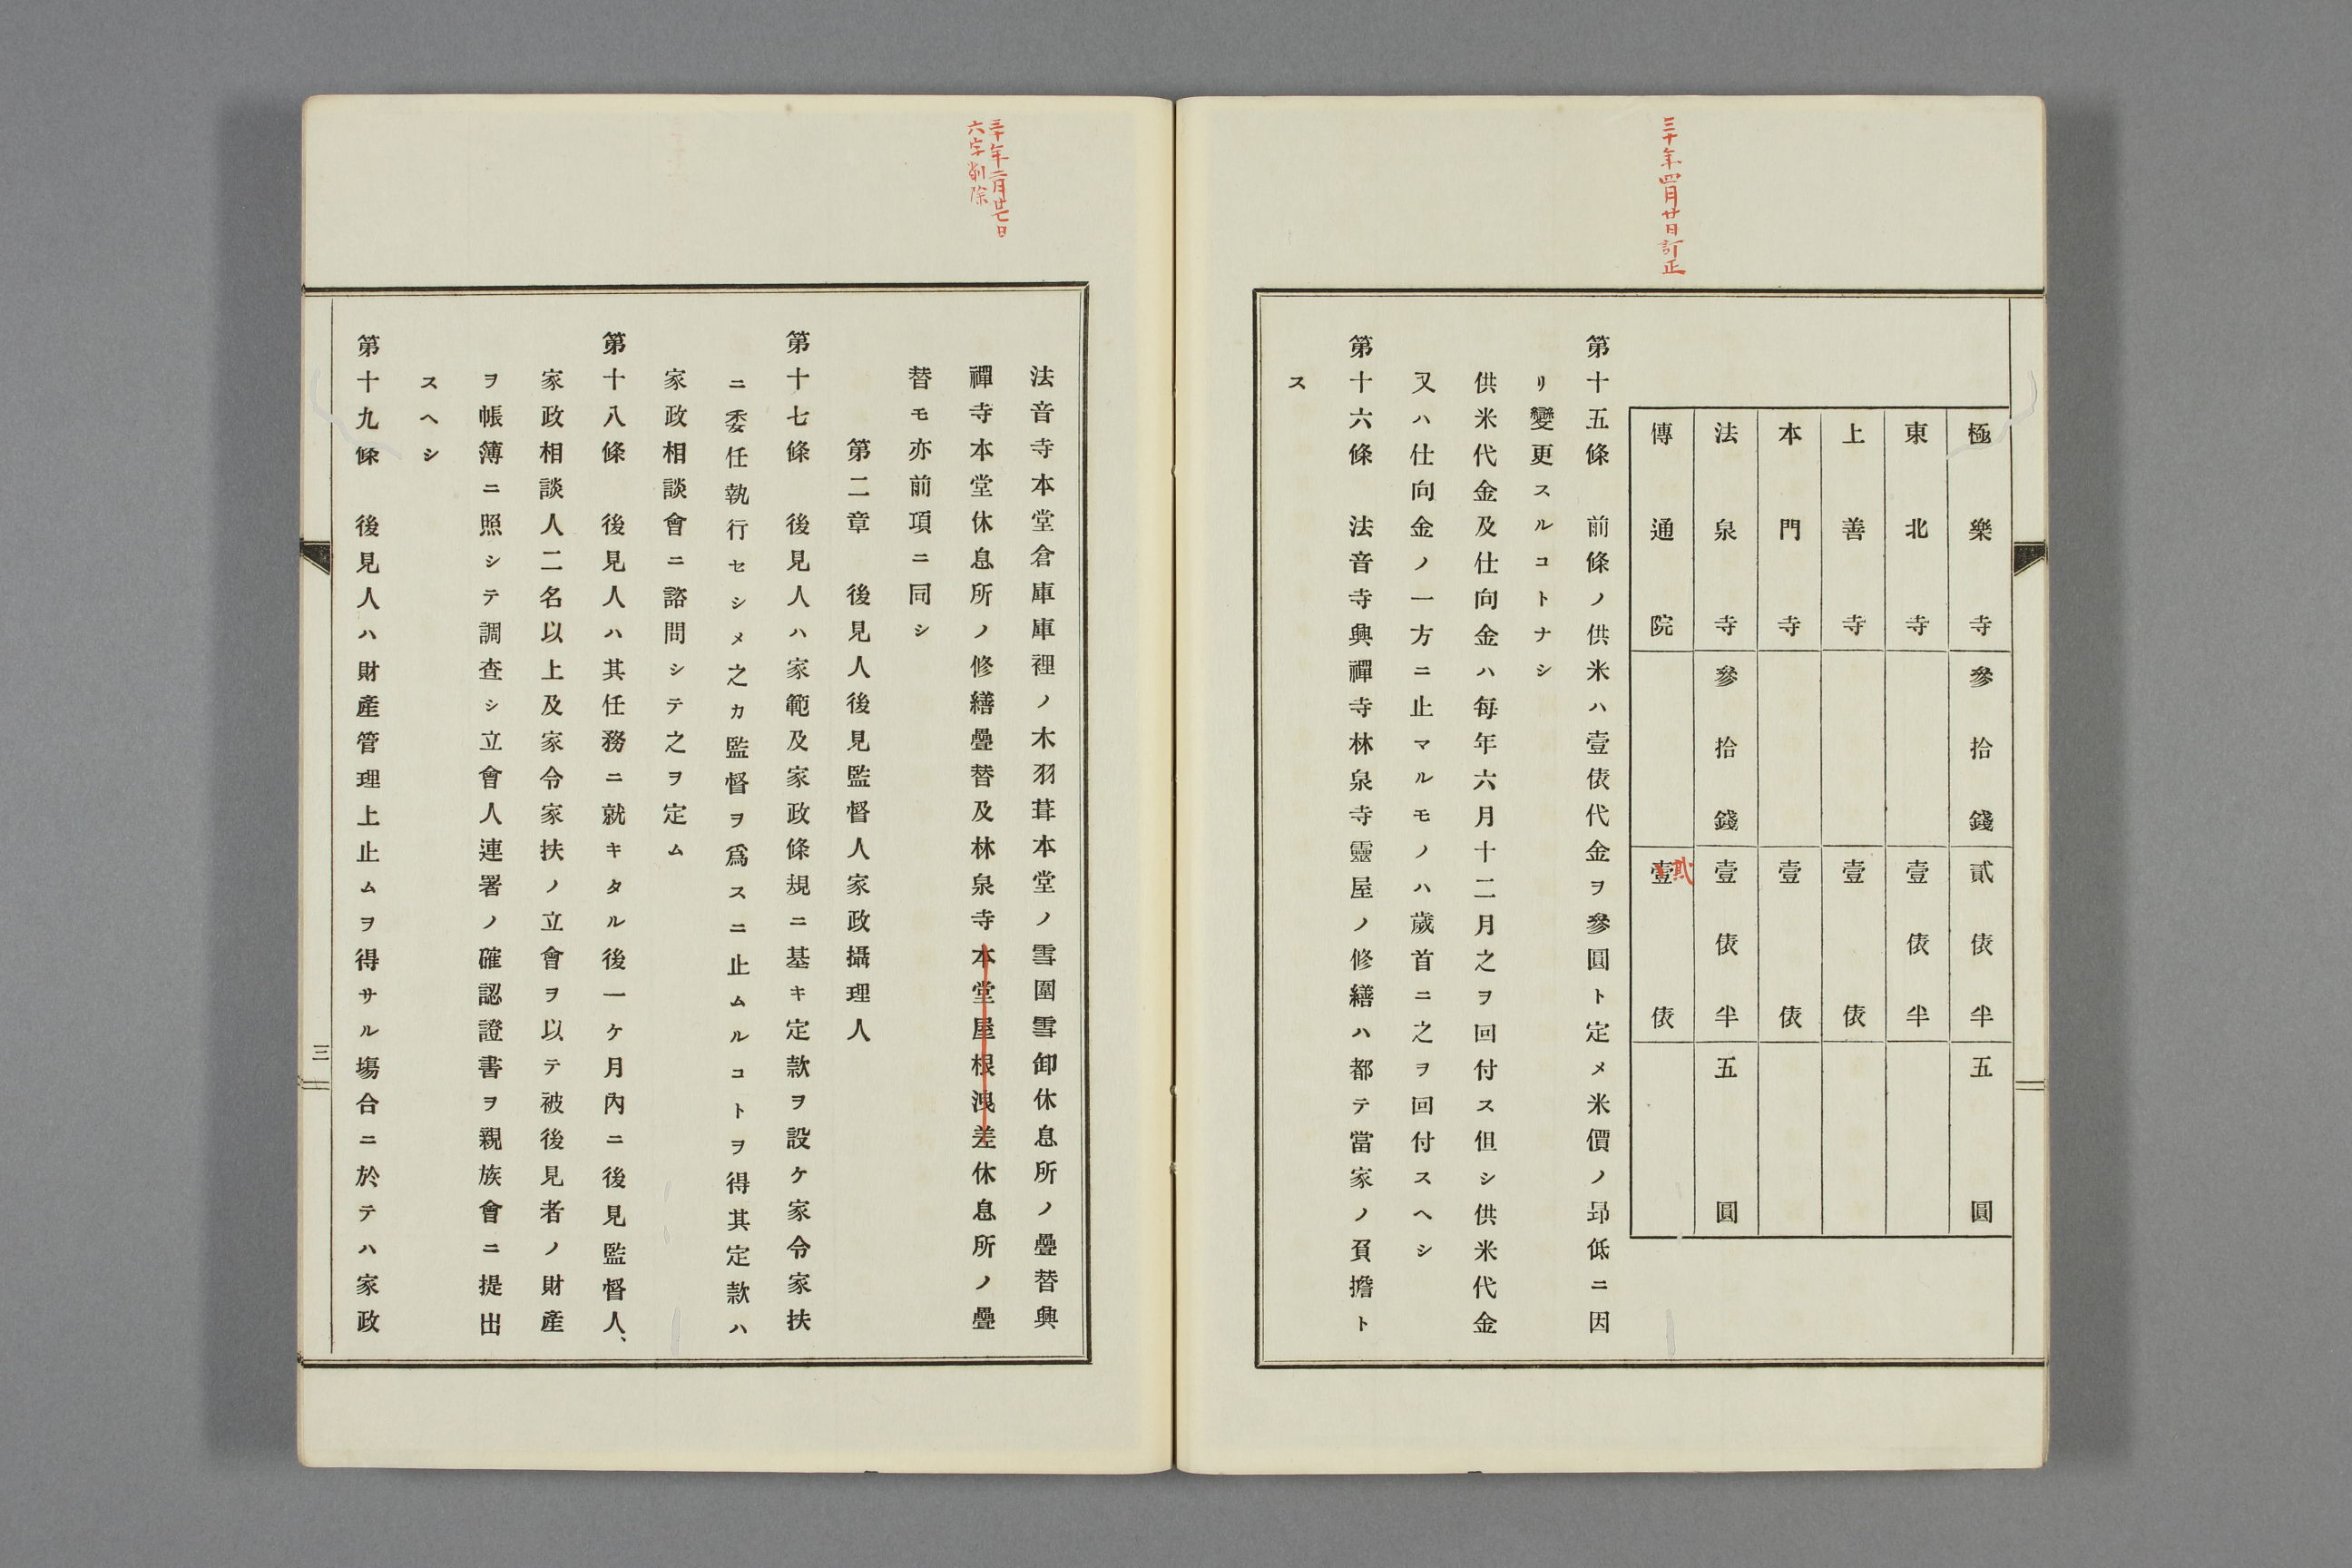 三十年四月廿日訂正
極樂寺 參拾錢 貳俵半 五圓
東北寺 壹俵半
上善寺 壹俵
本門寺 壹俵
法泉寺 參拾錢 壹俵半 五圓
傳通院 壹俵
貳
第十五條 前條ノ供米ハ壹俵代金ヲ參圓ト定メ米價ノ昻低ニ因
リ變更スルコトナシ
供米代金及仕向金ハ每年六月十二月之ヲ回付ス但シ供米代金
又ハ仕向金ノ一方ニ止マルモノハ歲首ニ之ヲ回付スヘシ
第十六條 法音寺興禪寺林泉寺靈屋ノ修繕ハ都テ當家ノ負擔ト
ス
三十年二月廿七日
六字削除
法音寺本堂倉庫庫裡ノ木羽葺本堂ノ雪圍雪卸休息所ノ疊替興
禪寺本堂休息所ノ修繕疊替及林泉寺本堂屋根洩差休息所ノ疊
替モ亦前項ニ同シ
第二章 後見人後見監督人家政攝理人
第十七條 後見人ハ家範及家政條規ニ基キ定款ヲ設ケ家令家扶
ニ委任執行セシメ之カ監督ヲ爲スニ止ムルコトヲ得其定款ハ
家政相談會ニ諮問シテ之ヲ定ム
第十八條 後見人ハ其任務ニ就キタル後一ケ月內ニ後見監督人、
家政相談人二名以上及家令家扶ノ立會ヲ以テ被後見者ノ財產
ヲ帳簿ニ照シテ調査シ立會人連署ノ確認證書ヲ親族會ニ提出
スヘシ
第十九條 後見人ハ財產管理上止ムヲ得サル塲合ニ於テハ家政
三